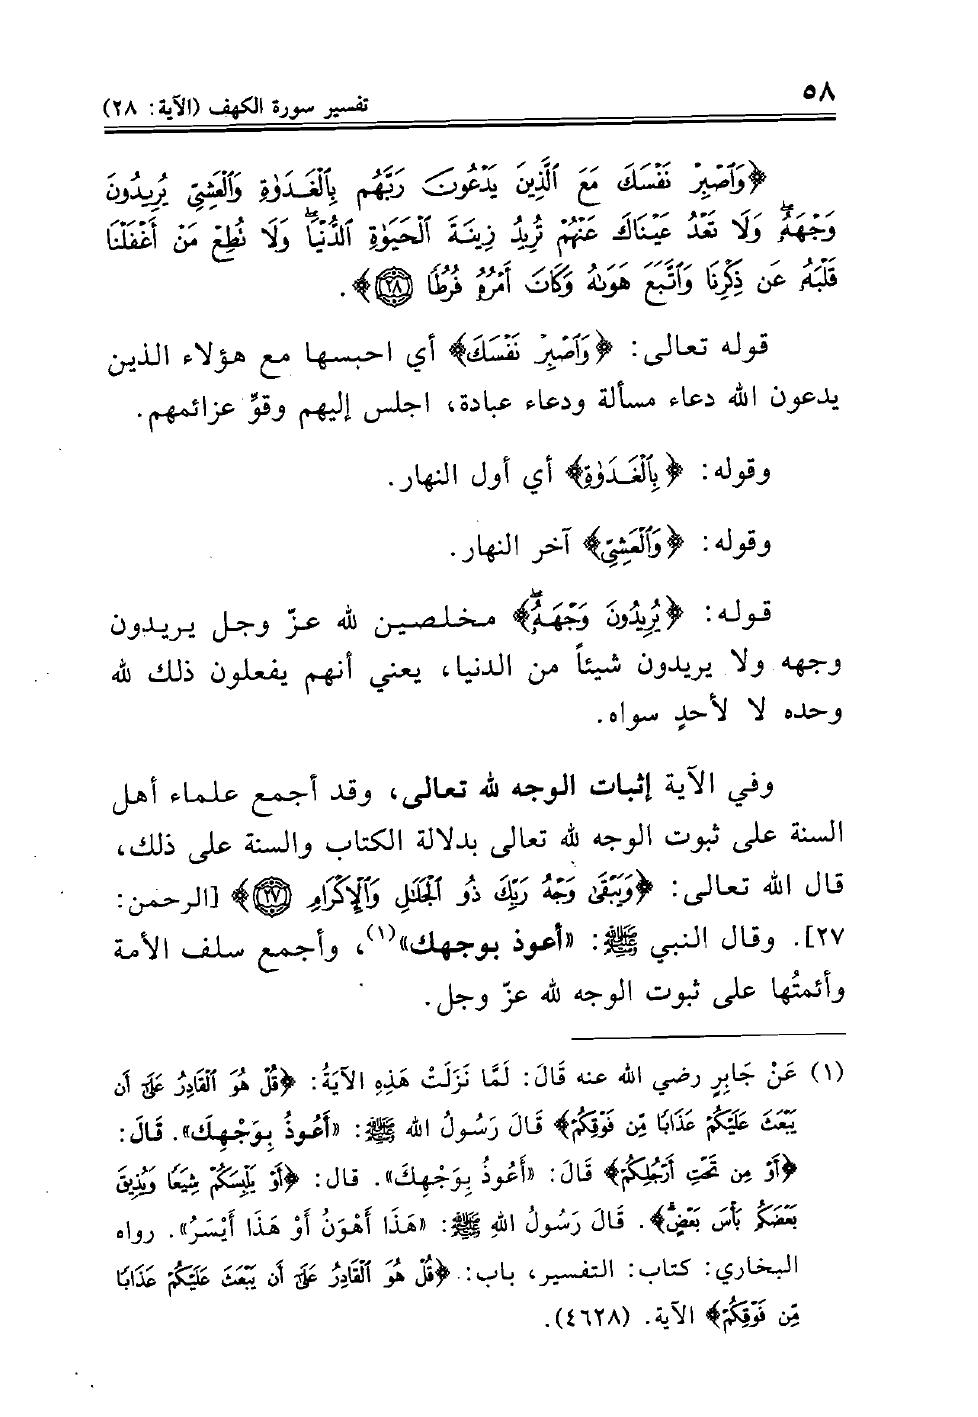 ٥٨
تفسير سورة الكهف (الآية: ٢٨)
﴿وَٱصْبِرْ نَفْسَكَ مَعَ ٱلَّذِينَ يَدْعُونَ رَبَّهُم بِٱلْغَدَوٰةِ وَٱلْعَشِىِّ يُرِيدُونَ
وَجْهَهُۥۖ وَلَا تَعْدُ عَيْنَاكَ عَنْهُمْ تُرِيدُ زِينَةَ ٱلْحَيَوٰةِ ٱلدُّنْيَاۖ وَلَا نُطِعْ مَنْ أَغْفَلْنَا
قَلْبَهُۥ عَن ذِكْرِنَا وَٱتَّبَعَ هَوَىٰهُ وَكَانَ أَمْرُهُۥ فُرُطًا ٢٨﴾.
قوله تعالى: ﴿وَٱصْبِرْ نَفْسَكَ﴾ أي احبسها مع هؤلاء الذين
يدعون الله دعاء مسألة ودعاء عبادة، اجلس إليهم وقوِّ عزائمهم.
وقوله: ﴿بِٱلْغَدَوٰةِ﴾ أي أول النهار.
وقوله: ﴿وَٱلْعَشِىِّ﴾ آخر النهار.
قوله: ﴿يُرِيدُونَ وَجْهَهُۥۖ﴾ مخلصين لله عزّ وجل يريدون
وجهه ولا يريدون شيئاً من الدنيا، يعني أنهم يفعلون ذلك لله
وحده لا لأحدٍ سواه.
وفي الآية إثبات الوجه لله تعالى، وقد أجمع علماء أهل
السنة على ثبوت الوجه لله تعالى بدلالة الكتاب والسنة على ذلك،
قال الله تعالى: ﴿وَيَبْقَىٰ وَجْهُ رَبِّكَ ذُو ٱلْجَلَٰلِ وَٱلْإِكْرَامِ ٢٧﴾ [الرحمن:
٢٧]. وقال النبي ﷺ: «أعوذ بوجهك»(١)، وأجمع سلف الأمة
وأئمتُها على ثبوت الوجه لله عزّ وجل.
(١) عَنْ جَابِرٍ رضي الله عنه قَالَ: لَمَّا نَزَلَتْ هَذِهِ الآيَةُ: ﴿قُلْ هُوَ ٱلْقَادِرُ عَلَىٰٓ أَن
يَبْعَثَ عَلَيْكُمْ عَذَابًا مِّن فَوْقِكُمْ﴾ قَالَ رَسُولُ الله ﷺ: «أَعُوذُ بِوَجْهِكَ». قَالَ:
﴿أَوْ مِن تَحْتِ أَرْجُلِكُمْ﴾ قَالَ: «أَعُوذُ بِوَجْهِكَ». قال: ﴿أَوْ يَلْبِسَكُمْ شِيَعًا وَيُذِيقَ
بَعْضَكُم بَأْسَ بَعْضٍۗ﴾. قَالَ رَسُولُ اللهِ ﷺ: «هَذَا أَهْوَنُ أَوْ هَذَا أَيْسَرُ». رواه
البخاري: كتاب: التفسير، باب: ﴿قُلْ هُوَ ٱلْقَادِرُ عَلَىٰٓ أَن يَبْعَثَ عَلَيْكُمْ عَذَابًا
مِّن فَوْقِكُمْ﴾ الآية. (٤٦٢٨).